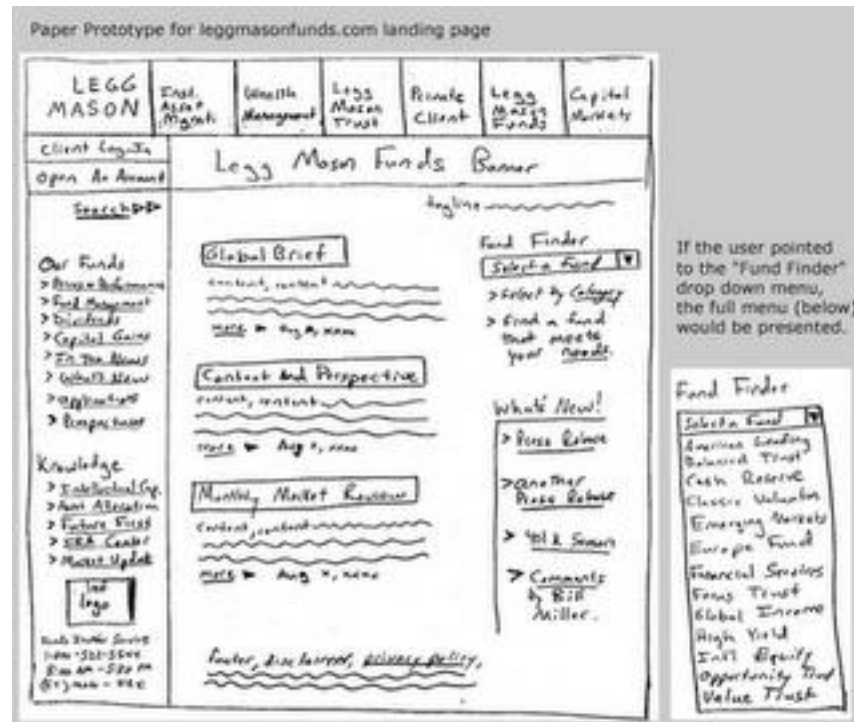 Paper Prototype for leggmasonfunds.com landing page
LEGG
MASON
Inst.
Asset
Mgmt.
Wealth
Management
Legg
Mason
Trust
Private
Client
Legg
Mason
Funds
Capital
Markets
Client Log-In
Open An Account
Legg Mason Funds Banner
Search
tagline
Our Funds
> Prices & Performance
> Fund Management
> Dividends
> Capital Gains
> In The News
> What's New
> Applications
> Prospectuses
Knowledge
> Intellectual Cap.
> Asset Allocation
> Future First
> IRA Center
> Market Update
logo
Global Brief
content, content
more
Content and Perspective
content, content
more Aug x, xxxx
Monthly Market Review
content, content
more Aug x, xxxx
footer, disclaimer, privacy policy,
Fund Finder
Select a Fund
> Select by Category
> Find a fund
that meets
your needs.
What's New!
> Press Release
> another
Press Release
> 401k
> Comments
by Bill
Miller.
If the user pointed
to the "Fund Finder"
drop down menu,
the full menu (below)
would be presented.
Fund Finder
Select a Fund
American Leading
Balanced Trust
Cash Reserve
Classic Valuation
Emerging Markets
Europe Fund
Financial Services
Focus Trust
Global Income
High Yield
Int'l Equity
Opportunity Trust
Value Trust